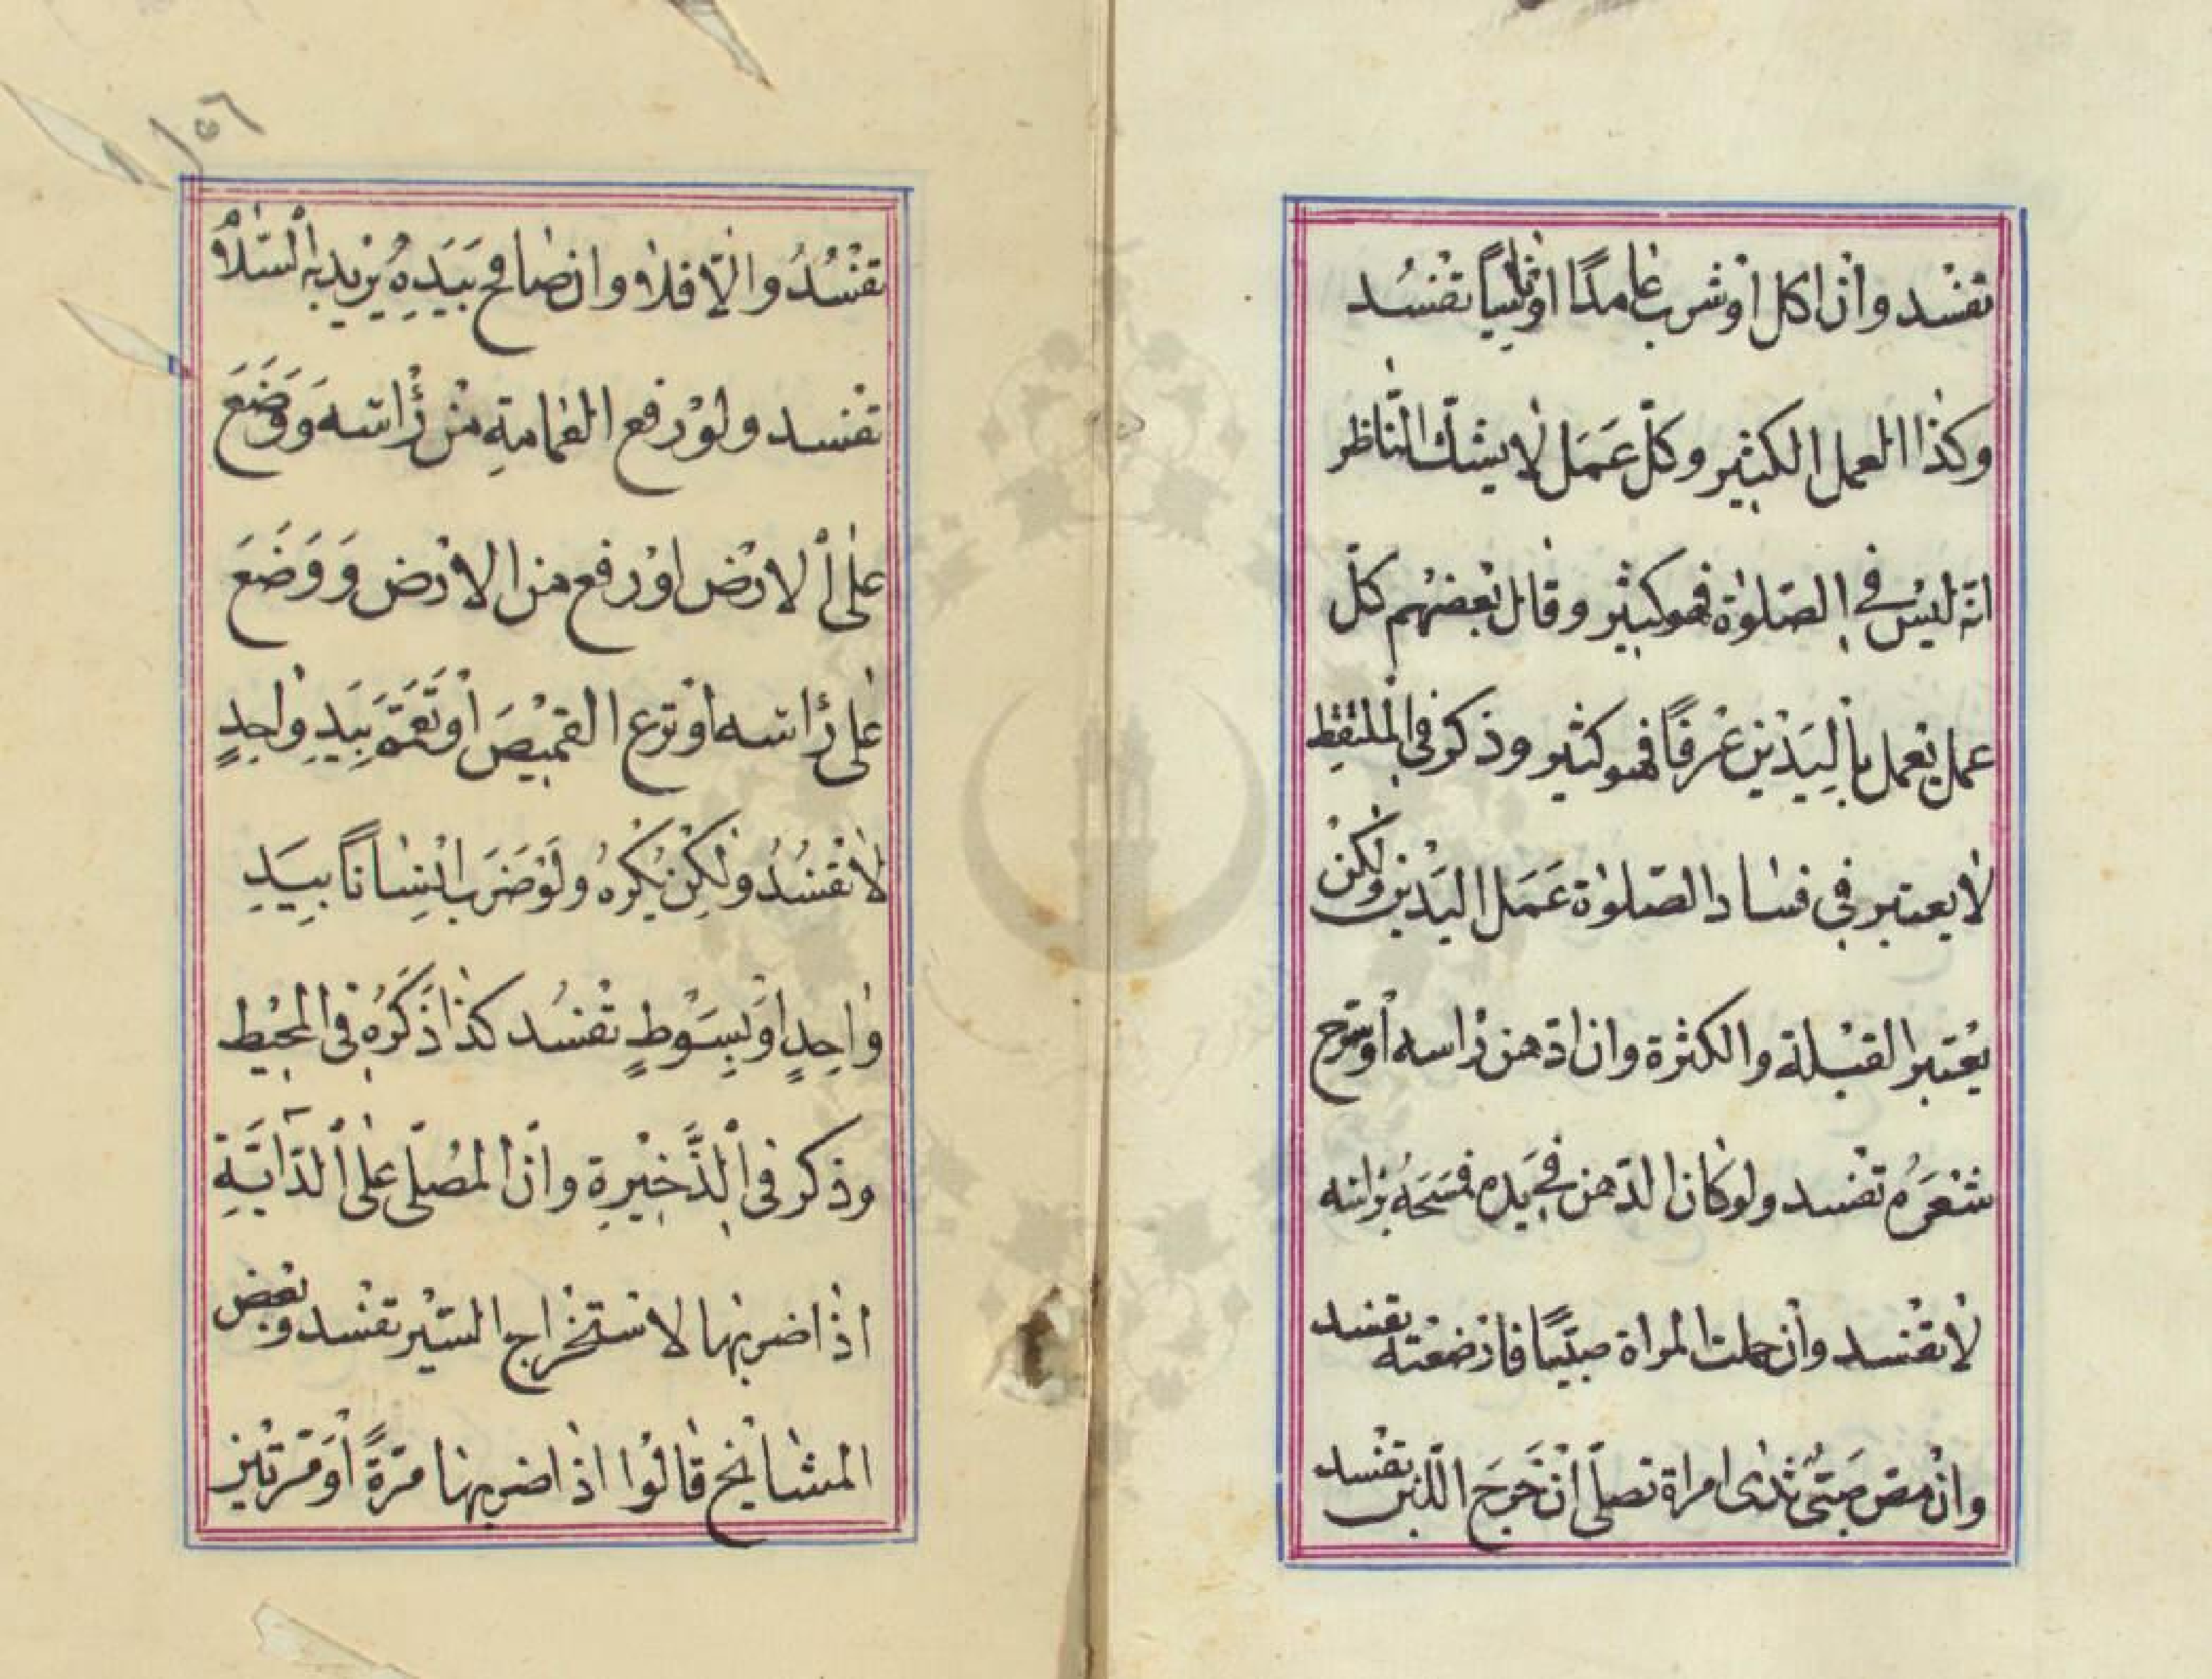 تفسد وان اكل او شرب عامدًا او ناسيًا تفسُد
وكذا العمل الكثير وكلّ عَمَل لا يشك الناظر
انّه ليس في الصّلوٰة فهو كثير وقال بعضهم كلّ
عمل يعمل باليَدَين عُرفًا فهو كثير وذكر فى الملتقِط
لا يعتبر في فساد الصّلوٰة عَمَل اليَدَين ولكن
يعتبر القبلة والكثرة وان ادّهن راسه او سرّح
شعَرَهُ تفسد ولو كان الدّهن في يَده فمسَحَهُ براسه
لا تفسد وان حملت المراة صبيًّا فارضعته تفسد
وان مصّ صَبِىٌّ ثدى امراة تصلّى ان خَرَجَ اللّبن تفسد
١٥٦
تفسُدُ والّا فلا وان صافح بيَدِهِ يُريد به السّلام
تفسد ولو رفع العمامةِ من رأسه وَوَضَعَ
على الارض او رفع من الارض وَوَضَعَ
على رأسه او نزع القميصَ او تَعَمَّمَ بِيَدٍ واحِدٍ
لا تفسُدُ ولكِن يُكرهُ ولَو ضَرَبَ اِنسانًا بِيَدٍ
واحِدٍ او بِسَوطٍ تفسُد كذا ذَكَرَهُ فى المحِيط
وذكر فى الذَّخيرةِ وانّ المصَلّى على الدّابّةِ
اذا ضربها لاستخراج السّير تفسد وبعض
المشايخ قالُوا اذا ضربها مَرّةً اَو مَرّتَين